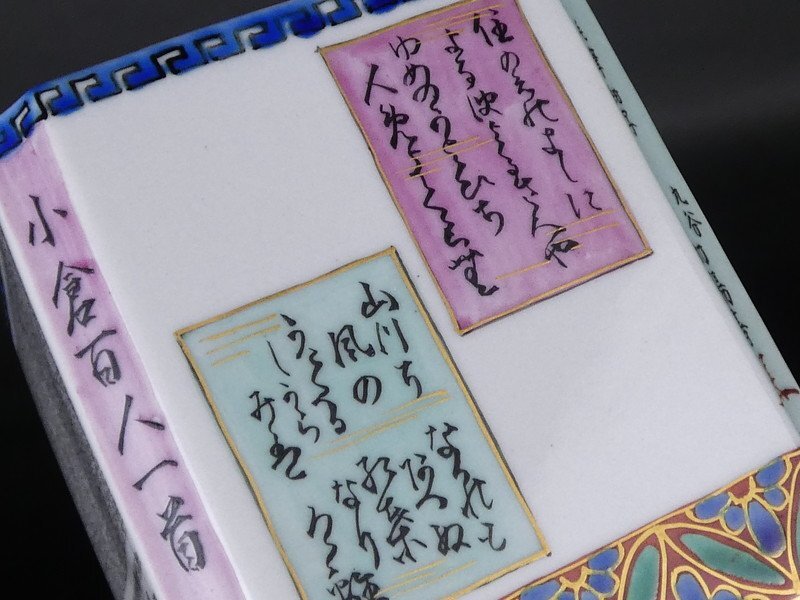 小倉百人一首
住の江のきしに
よる波よるさへや
ゆめのかよひち
人めよくらむ
山川に
風の
かけたる
しからみは
なかれも
あへぬ
紅葉
なり
九谷